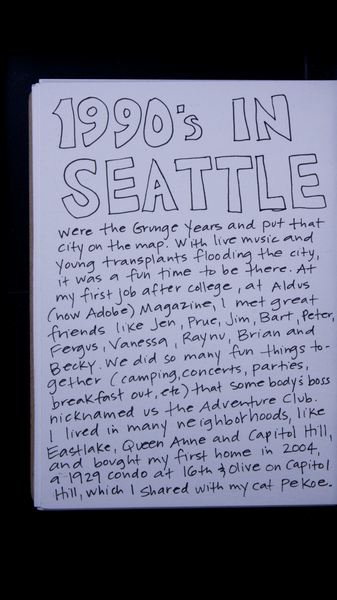 1990's IN
SEATTLE
were the Grunge Years and put that
city on the map. With live music and
young transplants flooding the city,
it was a fun time to be there. At
my first job after college, at Aldus
(now Adobe) Magazine, I met great
friends like Jen, Prue, Jim, Bart, Peter,
Fergus, Vanessa, Raynu, Brian and
Becky. We did so many fun things to-
gether (camping, concerts, parties,
breakfast out, etc) that somebody's boss
nicknamed us the Adventure Club.
I lived in many neighborhoods, like
Eastlake, Queen Anne and Capitol Hill,
and bought my first home in 2004,
a 1929 condo at 16th & Olive on Capitol
Hill, which I shared with my cat Pekoe.